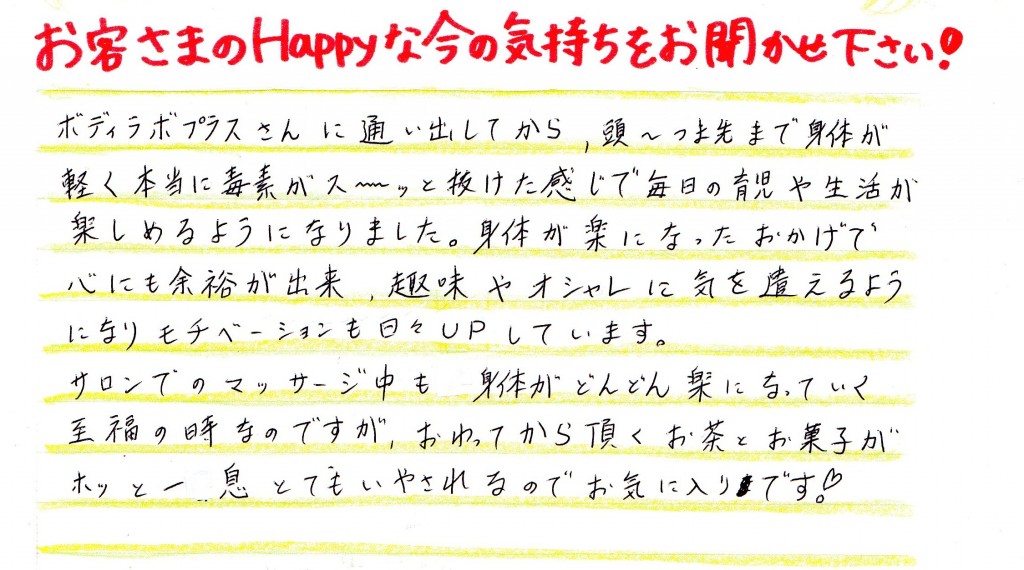 お客さまのHappyな今の気持ちをお聞かせ下さい!
ボディラボプラスさんに通い出してから、頭〜つま先まで身体が
軽く本当に毒素がス〜〜ッと抜けた感じで毎日の育児や生活が
楽しめるようになりました。身体が楽になったおかげで
心にも余裕が出来、趣味やオシャレに気を遣えるよう
になりモチベーションも日々UPしています。
サロンでのマッサージ中も 身体がどんどん楽になっていく
至福の時なのですが、おわってから頂くお茶とお菓子が
ホッと一息とてもいやされるのでお気に入りです。♡